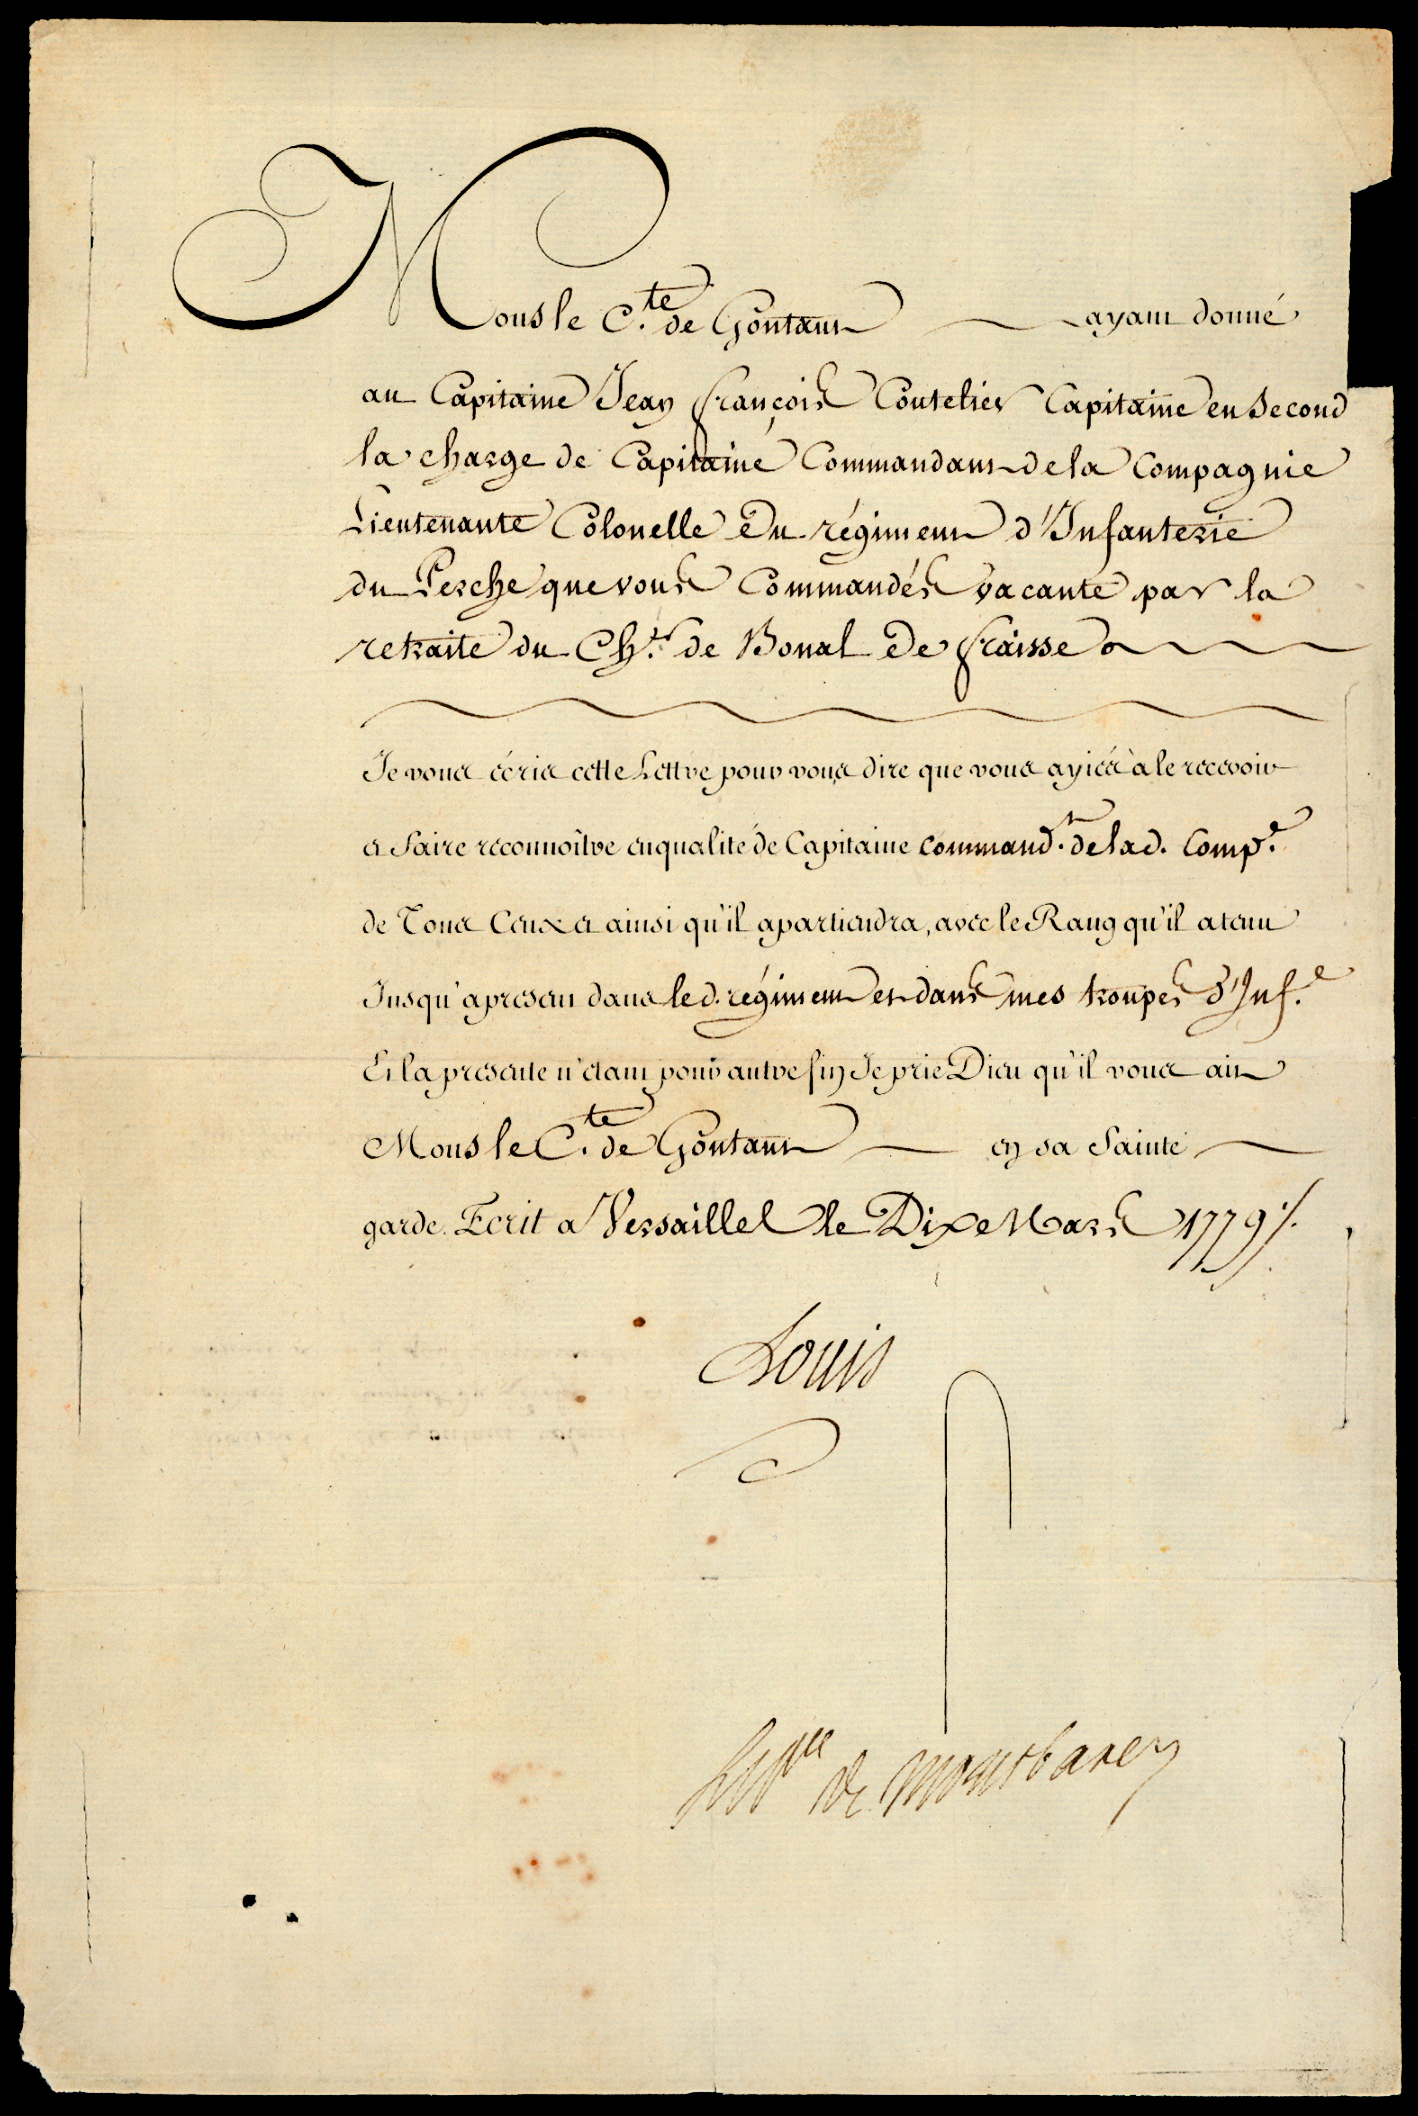 Mons le C.te de Gontaut ayant donné
au Capitaine Jean François Coutelier Capitaine en Second
la charge de Capitaine Commandant de la Compagnie
Lieutenante Colonelle Du régiment d'Infanterie
du Perche que vous Commandés vacante par la
retraite du Ch.er de Bonal De fraisse
Je vous écris cette Lettre pour vous dire que vous ayiés à le recevoir
et faire reconnoître en qualité de Capitaine command.t de lad. Comp.e
de Tous Ceux et ainsi qu'il apartiendra, avec le Rang qu'il a tenu
Jusqu'apresent dans led. régiment et dans mes troupes d'Inf.e
Et la presente n'étant pour autre fin Je prie Dieu qu'il vous ait
Mons le C.te de Gontaut en sa Sainte
garde. Ecrit a Versailles le Dix Mars 1779 ./.
Louis
de montbarey